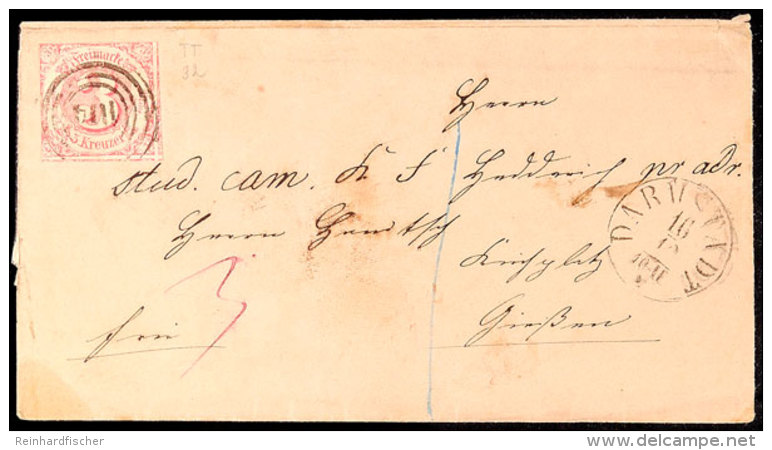 Freimarke
3
3 Kreuzer
TT
32
Herrn
stud. cam. K F Heddrich pr adr.
Herrn Hentsch
Kirchplatz
Gießen
frei
3
DARMSTADT
16
10-11
Reinhardfischer
www.delcampe.net